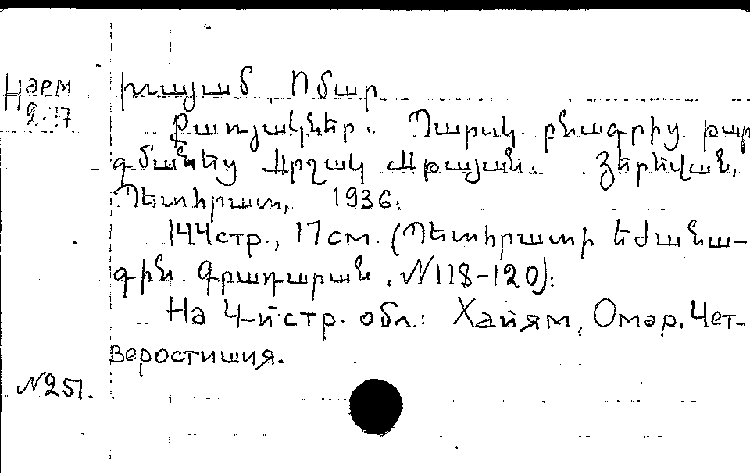 Наем խայամ Ոմար
2.17
Քառյակներ. Պարսկ բնագրից թար
գմանեց Արշակ Աթայան. Յերեվան,
Պետհրատ, 1936.
144стр., 17см. (Պետհրատի եժանա-
գին Գրադարան, N118-120).
На 4-й стр. обл.: Хайям, Омар. Чет-
веростишия.
N251.